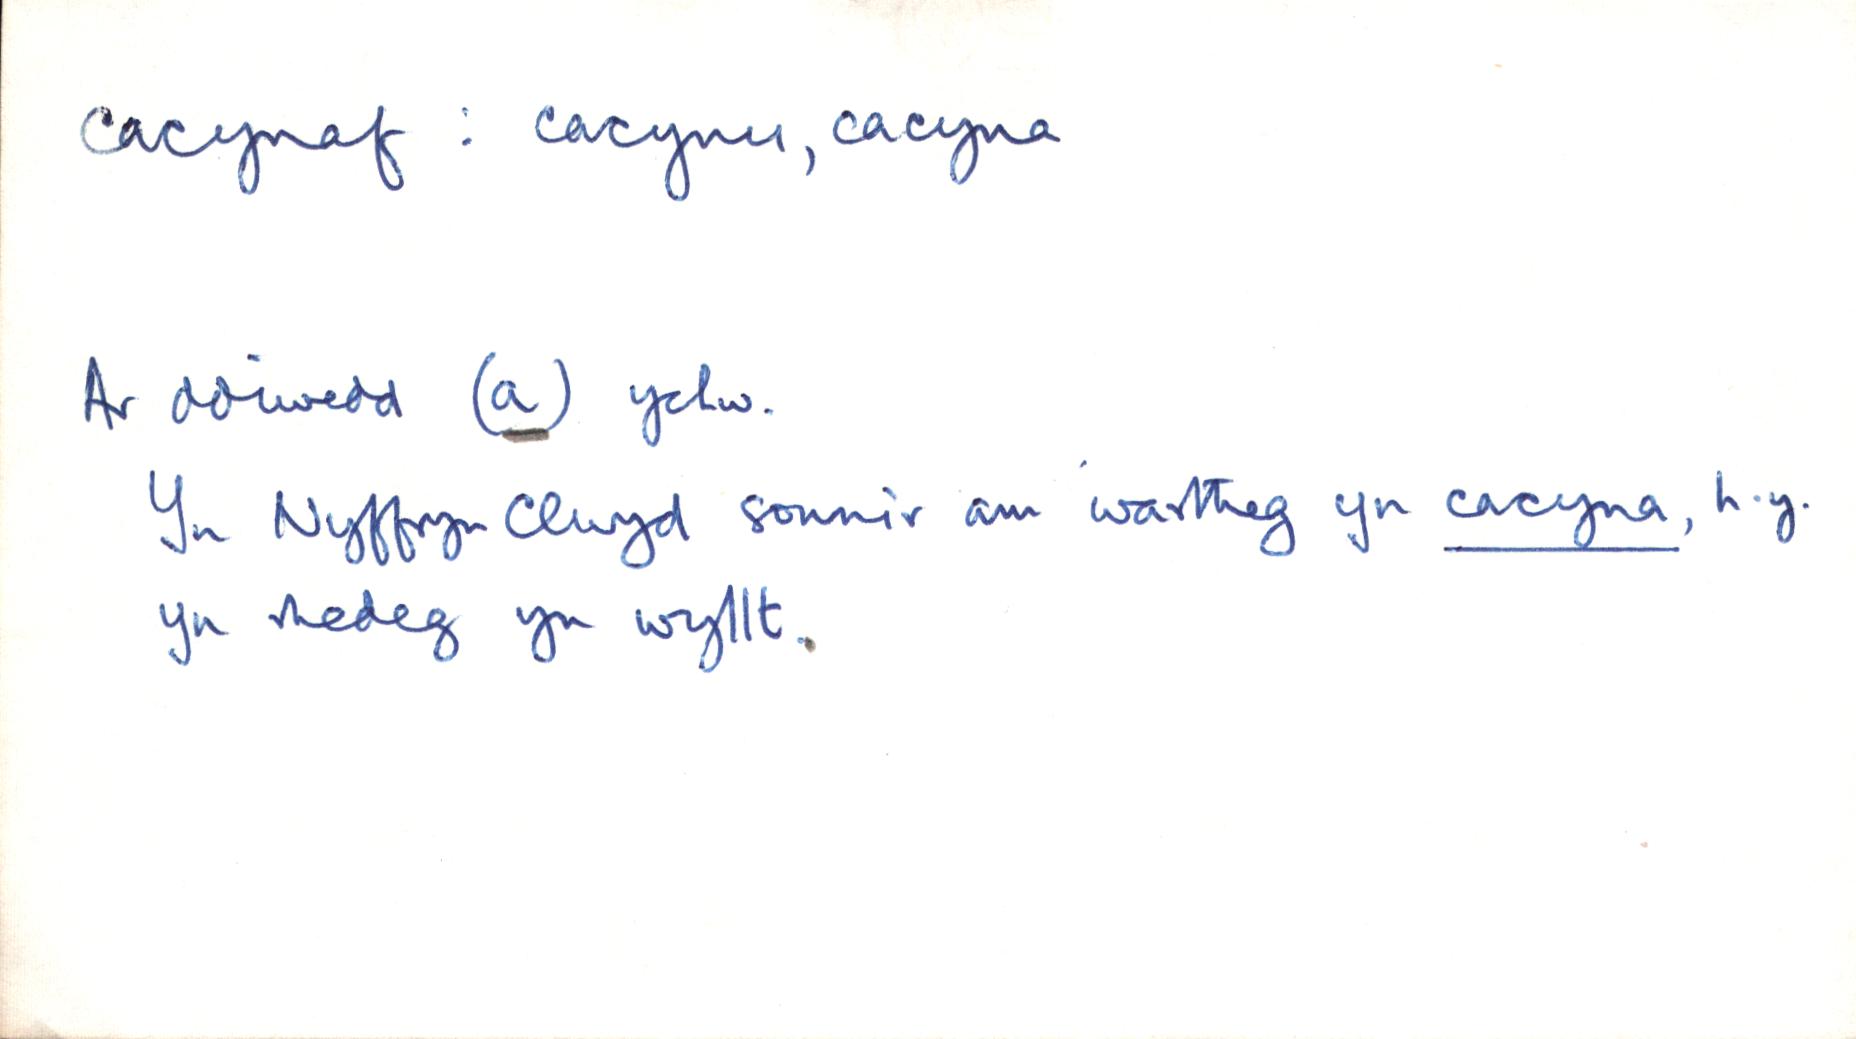 cacynaf : cacynu, cacyna
Ar ddiwedd (a) ychw.
Yn Nyffryn Clwyd sonnir am wartheg yn cacyna, h.y.
yn rhedeg yn wyllt.